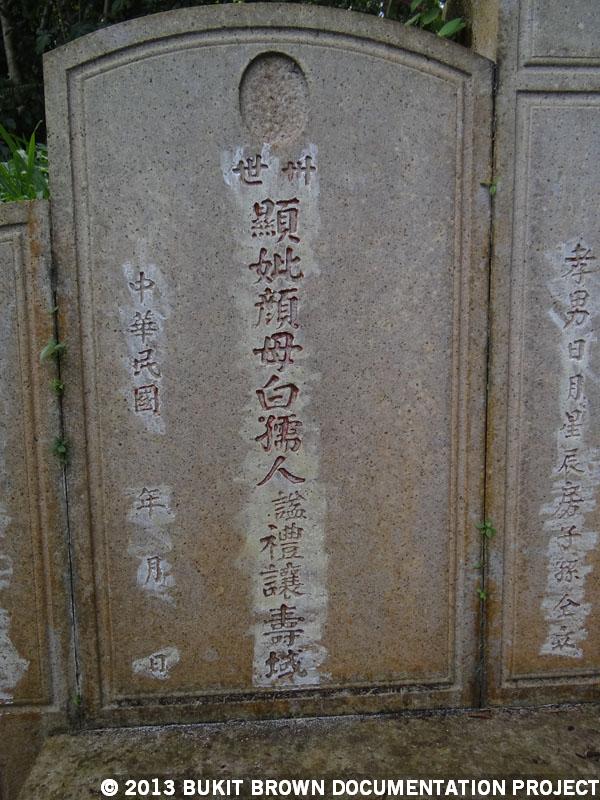 孝男日月星辰房子孫仝立
卅世
顯妣顏母白孺人謚禮讓壽域
中華民國 年 月 日
© 2013 BUKIT BROWN DOCUMENTATION PROJECT